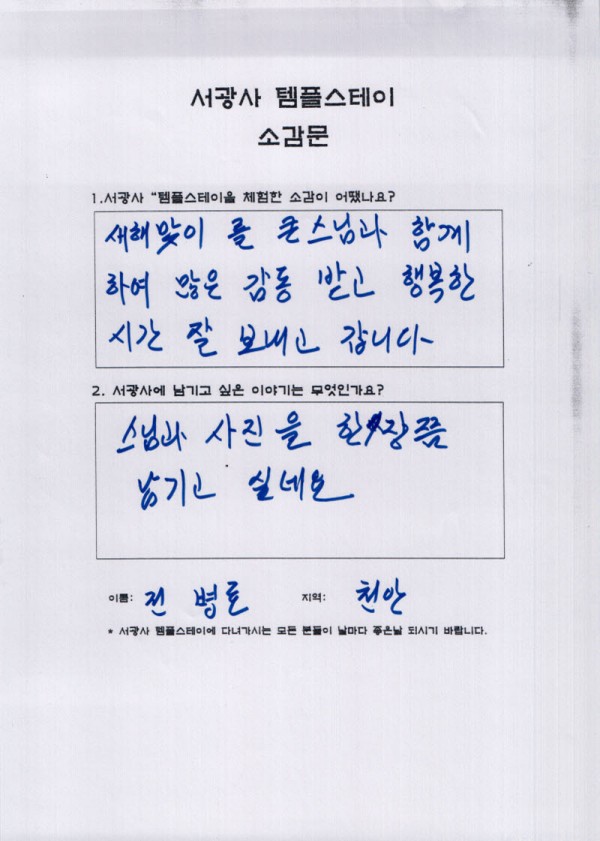 서광사 템플스테이
소감문
1.서광사 "템플스테이을 체험한 소감이 어땠나요?
새해맞이 를 큰스님과 함께
하여 많은 감동 받고 행복한
시간 잘 보내고 갑니다-
2. 서광사에 남기고 싶은 이야기는 무엇인가요?
스님과 사진을 한 장쯤
남기고 싶네요
이름: 전 병로 지역: 천안
* 서광사 템플스테이에 다녀가시는 모든 분들이 날마다 좋은날 되시기 바랍니다.